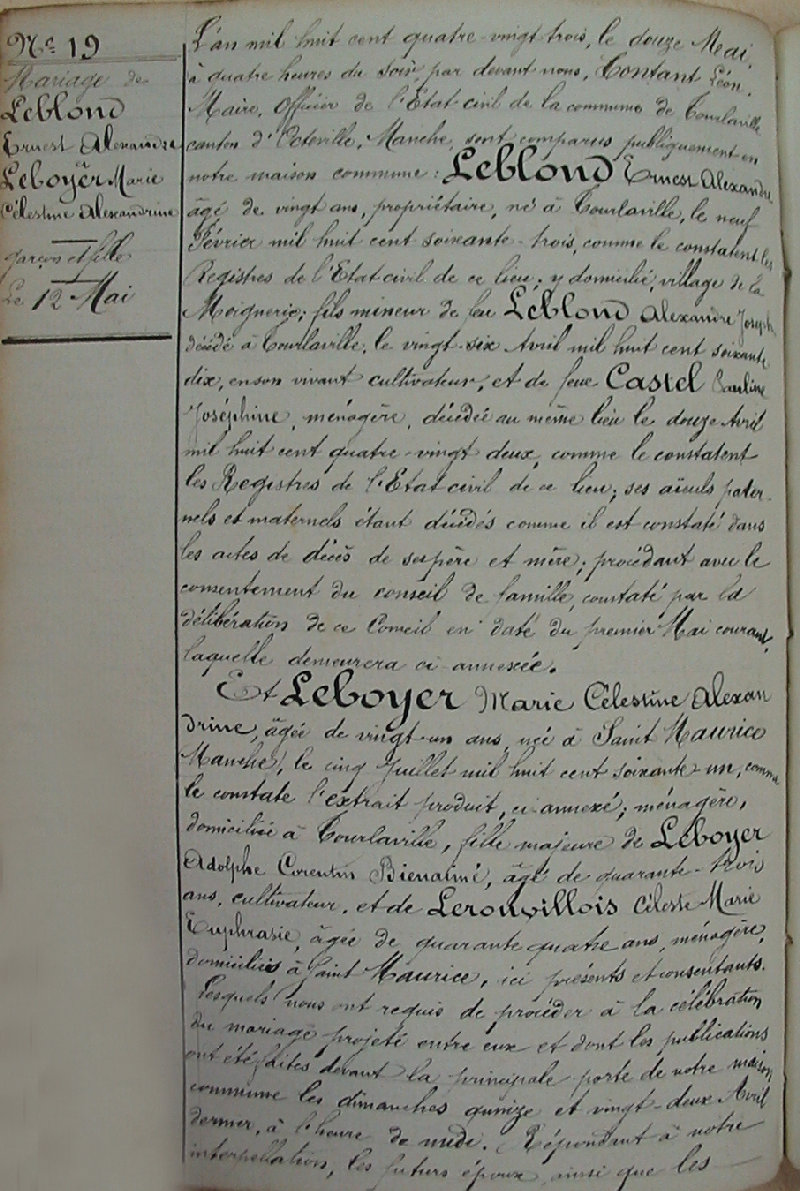 Nº 19
Mariage de
Leblond
Ernest Alexandre
à
Leboyer Marie
Célestine Alexandrine
garçon et fille
Le 12 Mai
L'an mil huit cent quatre-vingt trois, le douze Mai,
à quatre heures du soir, par devant nous, Contant Léon,
Maire, Officier de l'Etat civil de la commune de Tourlaville
canton d'Octeville, Manche, sont comparus publiquement en
notre maison commune : Leblond Ernest Alexandre
âgé de vingt ans, propriétaire, né à Tourlaville, le neuf
Février mil huit cent soixante-trois, comme le constatent les
Registres de l'Etat civil de ce lieu ; y domicilié, village de la
Moignerie ; fils mineur de feu Leblond Alexandre Joseph
décédé à Tourlaville, le vingt-six Avril mil huit cent soixante
dix, en son vivant cultivateur, et de feue Castel Pauline
Joséphine, ménagère, décédée au même lieu le douze Avril
mil huit cent quatre-vingt deux, comme le constatent
les Registres de l'Etat civil de ce lieu ; ses aïeuls pater-
nels et maternels étant décédés comme il est constaté dans
les actes de décès de ses père et mère ; procédant avec le
consentement du conseil de famille, constaté par la
délibération de ce Conseil en date du premier Mai courant,
laquelle demeurera ci-annexée.
Et Leboyer Marie Célestine Alexan
drine, âgée de vingt-un ans, née à Saint Maurice
Manche, le cinq Juillet mil huit cent soixante-un, comme
le constate l'extrait produit, ci annexé ; ménagère,
domiciliée à Tourlaville, fille majeure de Leboyer
Adolphe Corentin Bienaimé, âgé de quarante-trois
ans, cultivateur, et de Lerouvillois Céleste Marie
Euphrasie, âgée de quarante quatre ans, ménagère,
domiciliés à Saint Maurice, ici présents et consentants.
Lesquels nous ont requis de procéder à la célébration
du mariage projeté entre eux et dont les publications
ont été faites devant la principale porte de notre maison
commune les dimanches quinze et vingt-deux Avril
dernier, à l'heure de midi. Répondant à notre
interpellation, les futurs époux, ainsi que les